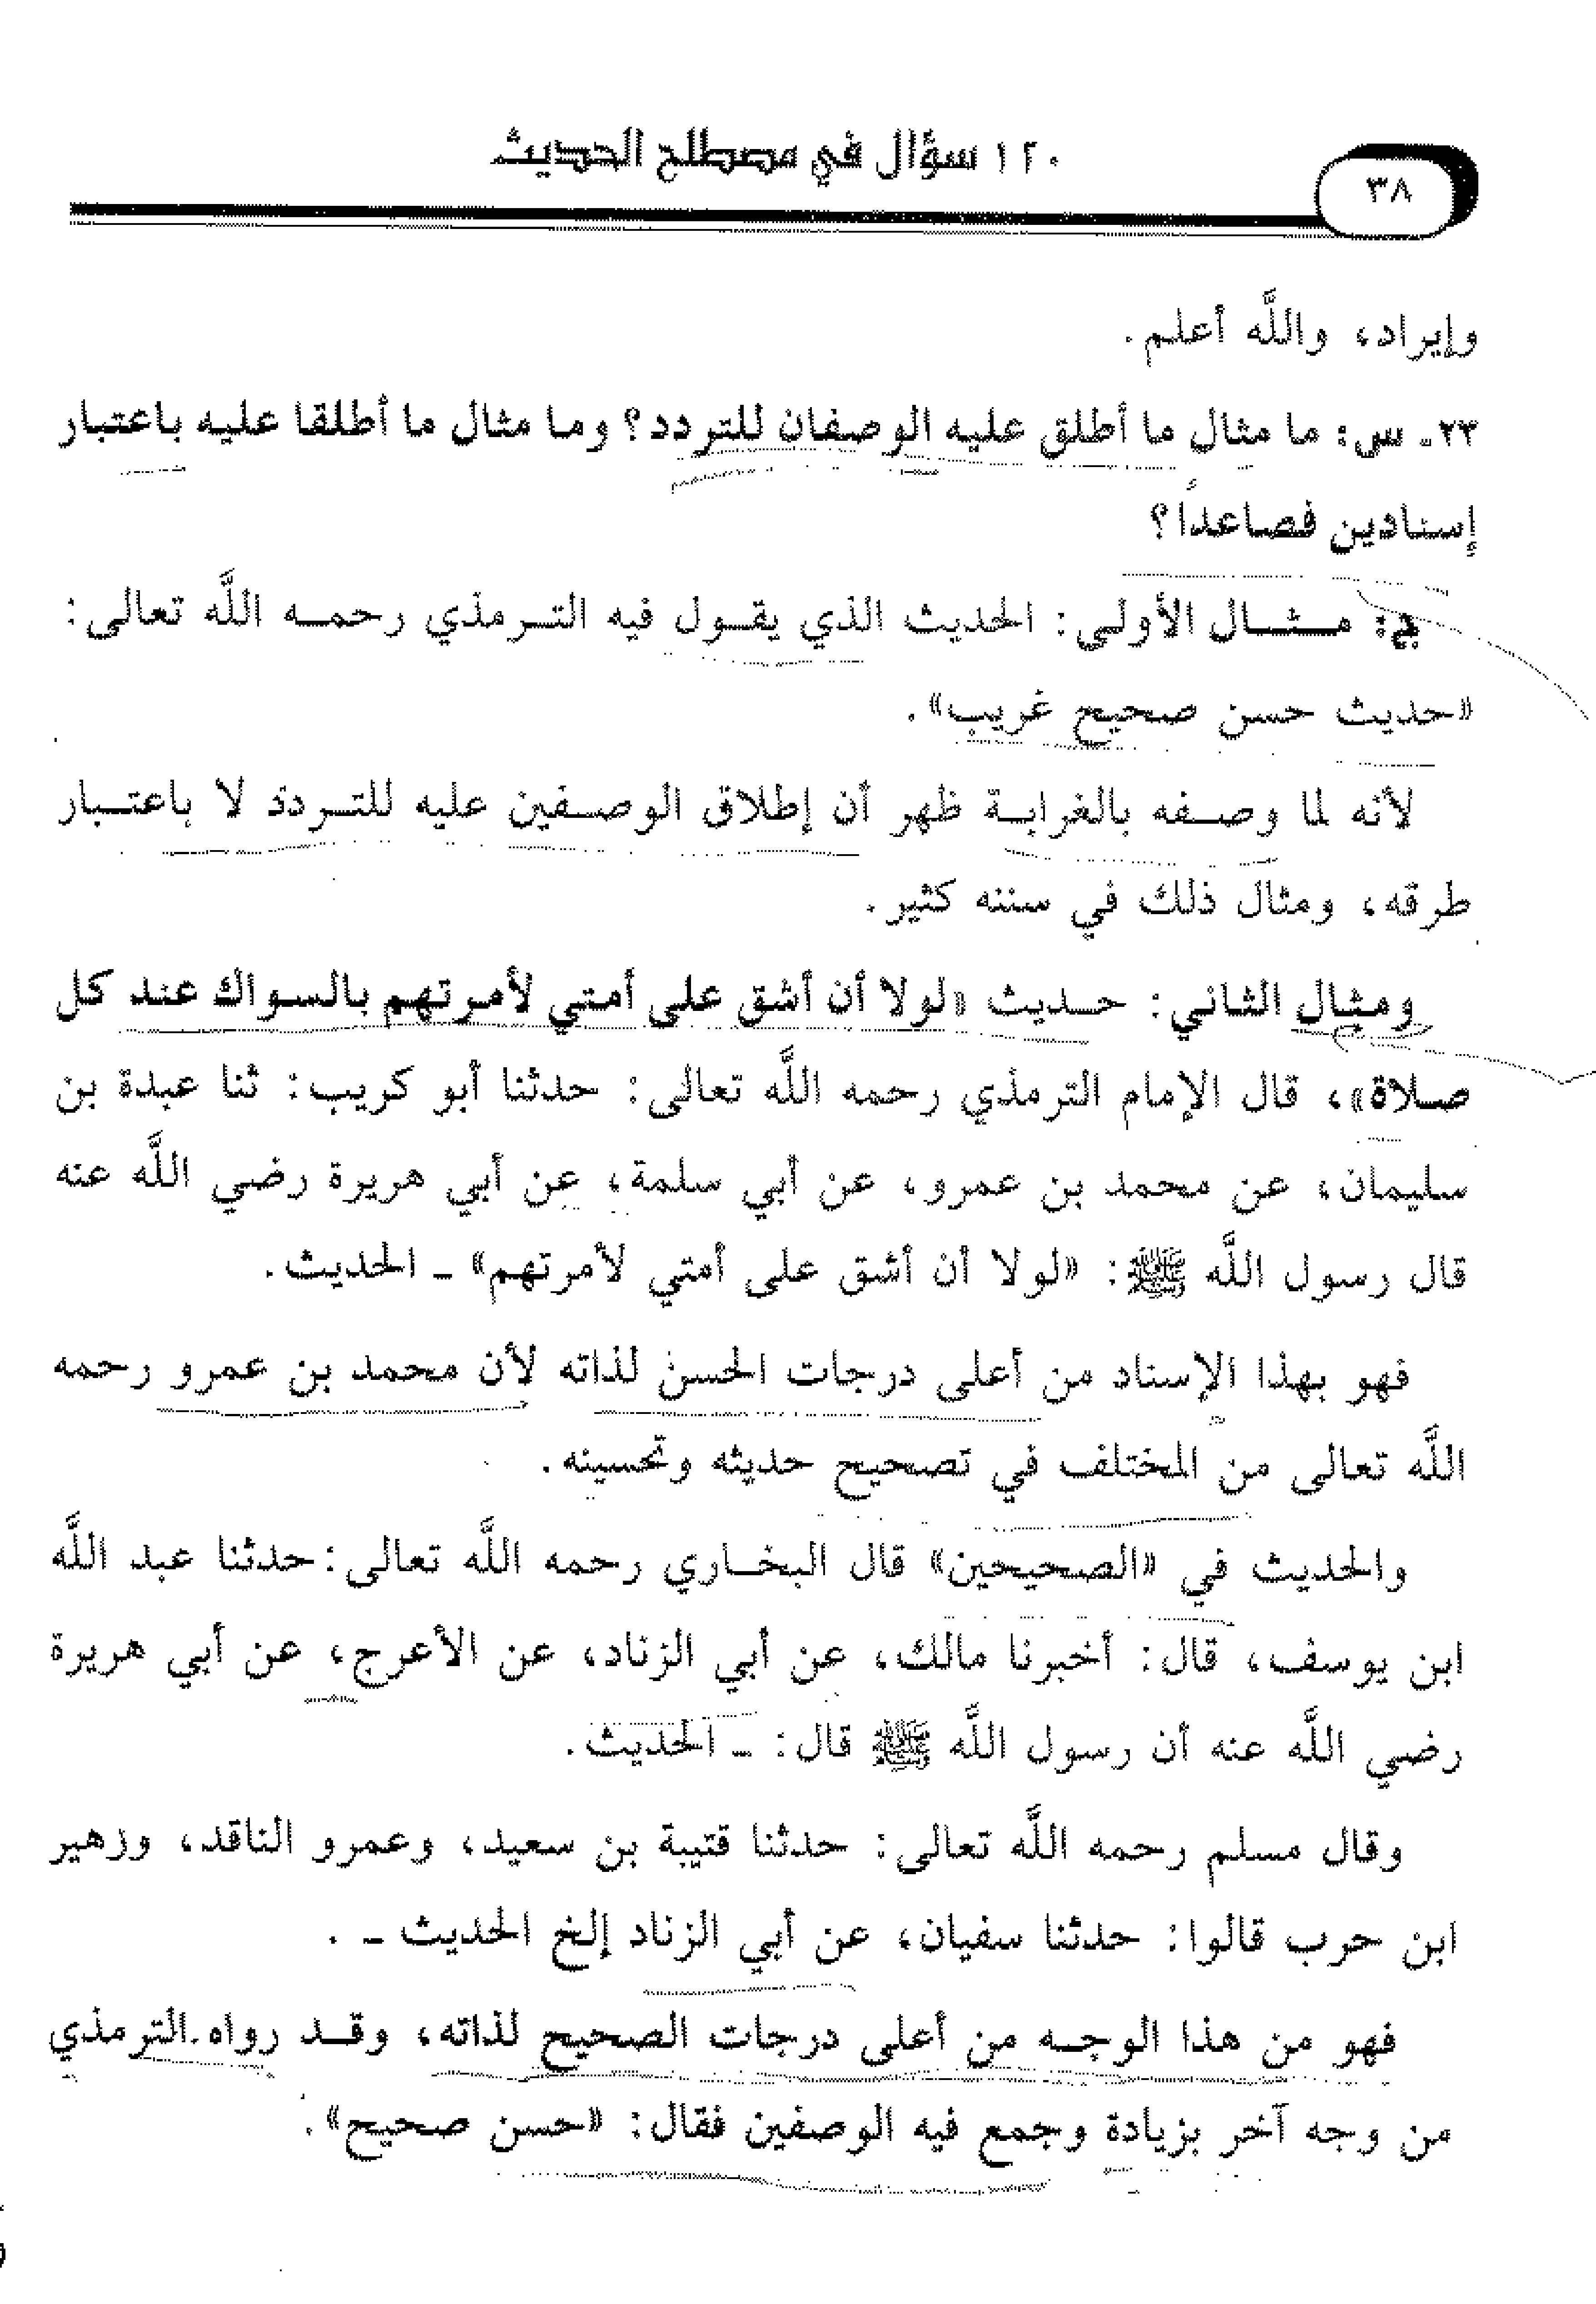 ١٢٠ سؤال في مصطلح الحديث
٣٨
وإيراد، واللَّه أعلم.
٢٣ـ س: ما مثال ما أطلق عليه الوصفان للتردد؟ وما مثال ما أطلقا عليه باعتبار
إسنادين فصاعداً؟
ج: مثال الأولى: الحديث الذي يقول فيه الترمذي رحمه اللَّه تعالى:
«حديث حسن صحيح غريب».
لأنه لما وصفه بالغرابة ظهر أن إطلاق الوصفين عليه للتردد لا باعتبار
طرقه، ومثال ذلك في سننه كثير.
ومثال الثاني: حديث «لولا أن أشق على أمتي لأمرتهم بالسواك عند كل
صلاة»، قال الإمام الترمذي رحمه اللَّه تعالى: حدثنا أبو كريب: ثنا عبدة بن
سليمان، عن محمد بن عمرو، عن أبي سلمة، عن أبي هريرة رضي اللَّه عنه
قال رسول اللَّه ﷺ: «لولا أن أشق على أمتي لأمرتهم» ـ الحديث.
فهو بهذا الإسناد من أعلى درجات الحسن لذاته لأن محمد بن عمرو رحمه
اللَّه تعالى من المختلف في تصحيح حديثه وتحسينه.
والحديث في «الصحيحين» قال البخاري رحمه اللَّه تعالى: حدثنا عبد اللَّه
ابن يوسف، قال: أخبرنا مالك، عن أبي الزناد، عن الأعرج، عن أبي هريرة
رضي اللَّه عنه أن رسول اللَّه ﷺ قال: ـ الحديث.
وقال مسلم رحمه اللَّه تعالى: حدثنا قتيبة بن سعيد، وعمرو الناقد، وزهير
ابن حرب قالوا: حدثنا سفيان، عن أبي الزناد إلخ الحديث ـ .
فهو من هذا الوجه من أعلى درجات الصحيح لذاته، وقد رواه الترمذي
من وجه آخر بزيادة وجمع فيه الوصفين فقال: «حسن صحيح».